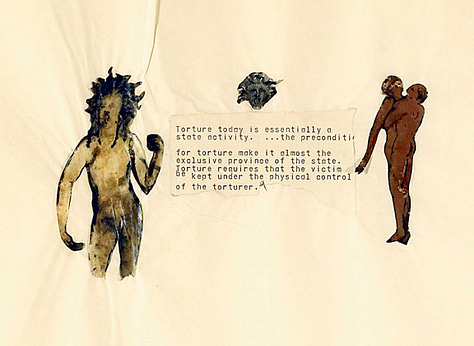 Torture today is essentially a
state activity. ...the preconditi
for torture make it almost the
exclusive province of the state.
Torture requires that the victim
be kept under the physical control
of the torturer.